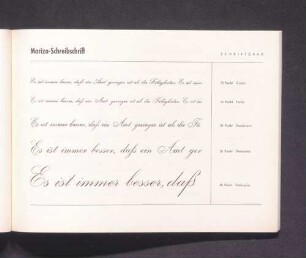 Mariza-Schreibschrift
SCHRIFTGRAD
Es ist immer besser, daß ein Amt geringer ist als die Fähigkeiten. Es ist
Es ist immer besser, daß ein Amt geringer ist als die Fähigkeiten. Es ist
Es ist immer besser, daß ein Amt geringer ist als die Fä
Es ist immer besser, daß ein Amt ger
Es ist immer besser, daß